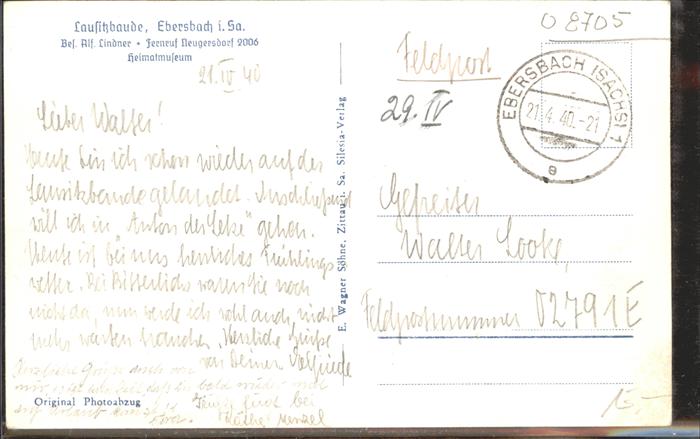 Lausitzbaude, Ebersbach i. Sa.
Bes. Alf. Lindner • Fernruf Neugersdorf 2006
Heimatmuseum
21. IV 40
Lieber Walter!
Heute bin ich schon wieder auf der
Lausitzbaude gelandet. Anschließend
will ich in "Anton der Letzte" gehen.
Heute ist bei uns herrliches Frühlings
wetter. Bei Ritterlichs waren sie noch
nicht da, nun werde ich wohl auch nicht
mehr warten brauchen. Herzliche Grüße
von Deiner
Herzliche Grüße auch von
mir
bald wieder mal
auf Urlaub
bei
Käthe Menzel
Original Photoabzug
E. Wagner Söhne, Zittau i. Sa. Silesia-Verlag
O 8705
Feldpost
29. IV
EBERSBACH (SACHS) 1
21.4.40.-21
e
Gefreiter
Walter
Feldpostnummer 02791E
15,-